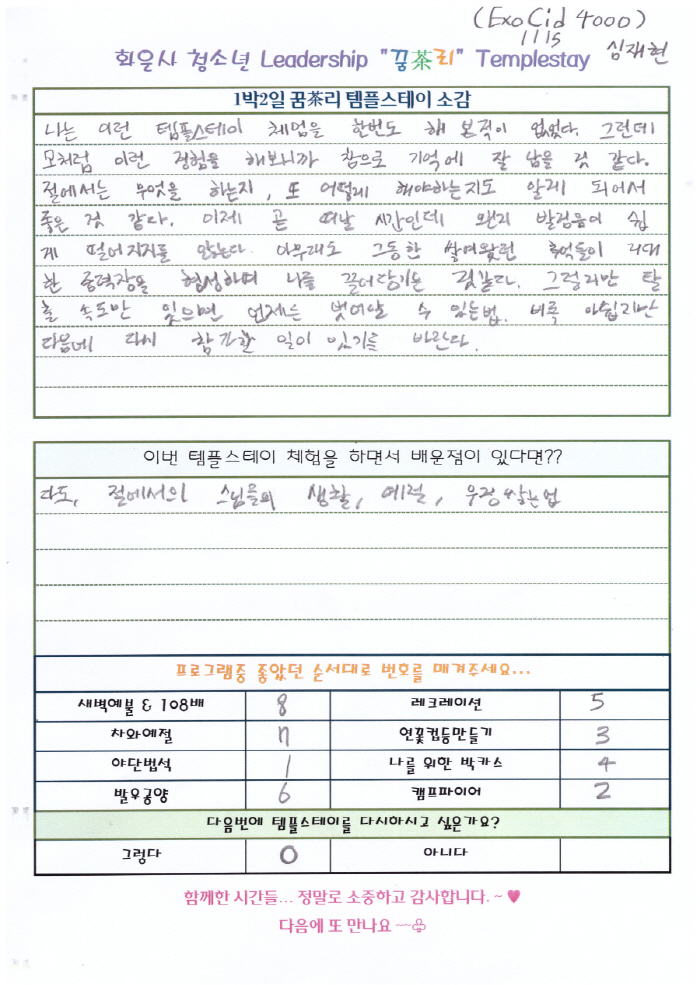 (ExoCid 4000)
1115
심재현
화운사 청소년 Leadership "꿈茶리" Templestay
1박2일 꿈茶리 템플스테이 소감
나는 이런 템플스테이 체험을 한번도 해 본적이 없었다. 그런데
모처럼 이런 경험을 해보니까 참으로 기억에 잘 남을 것 같다.
절에서는 무엇을 하는지, 또 어떻게 해야하는지도 알게 되어서
좋은 것 같다. 이제 곧 떠날 시간인데 왠지 발걸음이 쉽
게 떨어지지를 않는다. 아무래도 그동안 쌓여왔던 추억들이 거대
한 중력장을 형성하며 나를 끌어당기는 것같다. 그렇지만 탈
출 속도만 있으면 언제든 벗어날 수 있는법. 비록 아쉽지만
다음에 다시 참가할 일이 있기를 바란다.
이번 템플스테이 체험을 하면서 배운점이 있다면??
다도, 절에서의 스님들의 생활, 예절, 우정쌓는법
프로그램중 좋았던 순서대로 번호를 매겨주세요...
새벽예불 & 108배 8 레크레이션 5
차와예절 7 연꽃컵등만들기 3
야단법석 1 나를 위한 박카스 4
발우공양 6 캠프파이어 2
다음번에 템플스테이를 다시하시고 싶은가요?
그렇다 O 아니다
함께한 시간들... 정말로 소중하고 감사합니다. ~ ♥
다음에 또 만나요 ~~♧